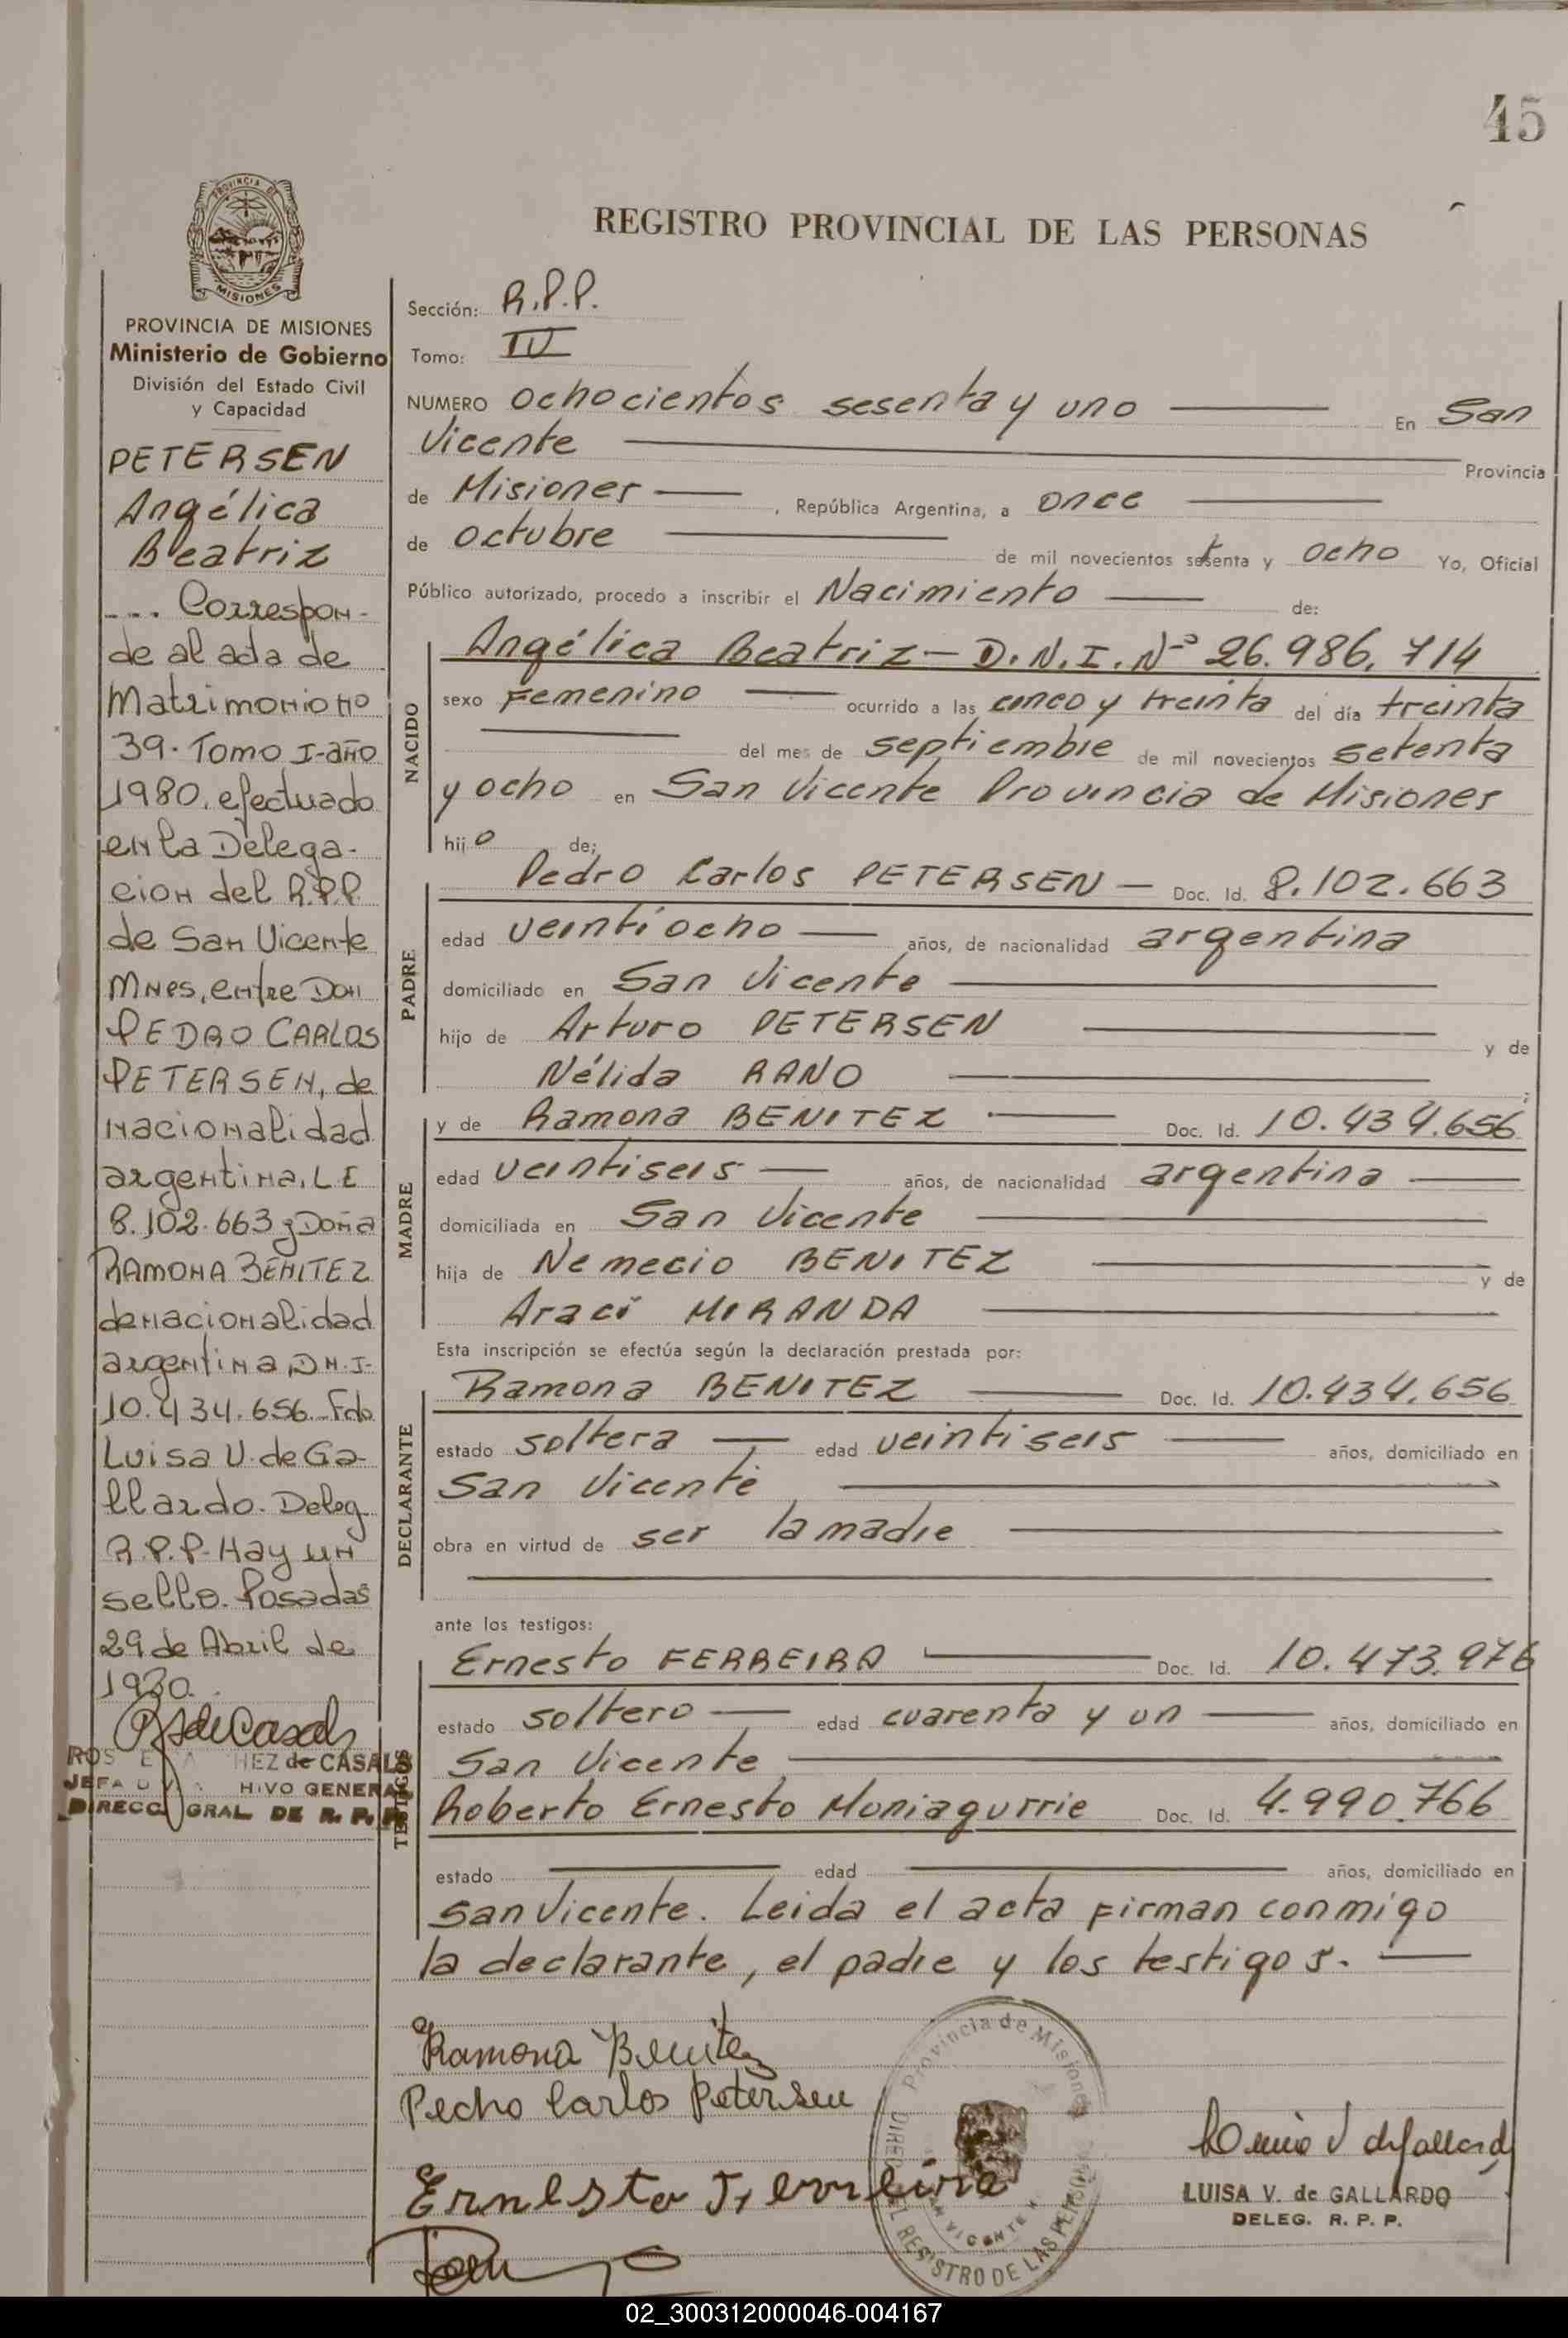 45
PROVINCIA DE
MISIONES
REGISTRO PROVINCIAL DE LAS PERSONAS
PROVINCIA DE MISIONES
Ministerio de Gobierno
División del Estado Civil
y Capacidad
PETERSEN
Angélica
Beatriz
--- Correspon-
de al acta de
Matrimonio Nº
39. Tomo I-año
1980. efectuado
en la Delega-
cion del R.P.P.
de San Vicente
Mnes, entre Don
PEDRO CARLOS
PETERSEN, de
nacionalidad
argentina, L.E
8.102.663 y Doña
RAMONA BENITEZ
de nacionalidad
argentina D.N.I-
10.434.656. Fdo
Luisa V. de Ga-
llardo. Deleg
R.P.P- Hay un
sello. Posadas
29 de Abril de
1980.
HEZ de CASALS
JEFA HIVO GENERAL
DIRECC GRAL DE R. P. P.
Sección: R.P.P.
Tomo: IV
NUMERO ochocientos sesenta y uno En San
Vicente Provincia
de Misiones , República Argentina, a once
de octubre de mil novecientos setenta y ocho Yo, Oficial
Público autorizado, procedo a inscribir el Nacimiento de:
NACIDO
Angélica Beatriz - D.N.I. Nº 26.986.714
sexo Femenino ocurrido a las cinco y treinta del día treinta
del mes de septiembre de mil novecientos setenta
y ocho en San Vicente Provincia de Misiones
hijo de;
PADRE
Pedro Carlos PETERSEN - Doc. Id. 8.102.663
edad veintiocho años, de nacionalidad argentina
domiciliado en San Vicente
hijo de Arturo PETERSEN y de
Nélida RANO
MADRE
y de Ramona BENITEZ Doc. Id. 10.434.656
edad veintiseis años, de nacionalidad argentina
domiciliada en San Vicente
hija de Nemecio BENITEZ y de
Araci MIRANDA
Esta inscripción se efectúa según la declaración prestada por:
DECLARANTE
Ramona BENITEZ Doc. Id. 10.434.656
estado soltera edad veintiseis años, domiciliado en
San Vicente
obra en virtud de ser la madre
ante los testigos:
TESTIGOS
Ernesto FERREIRA Doc. Id. 10.473.976
estado soltero edad cuarenta y un años, domiciliado en
San Vicente
Roberto Ernesto Muniagurrie Doc. Id. 4.990.766
estado edad años, domiciliado en
San Vicente. Leida el acta firman conmigo
la declarante, el padre y los testigos.
Ramona Benitez
Pedro Carlos Petersen
Ernesto Ferreira
Provincia de Misiones
REGISTRO DE LAS PERSONAS
SAN VICENTE
LUISA V. de GALLARDO
DELEG. R. P. P.
02_300312000046-004167